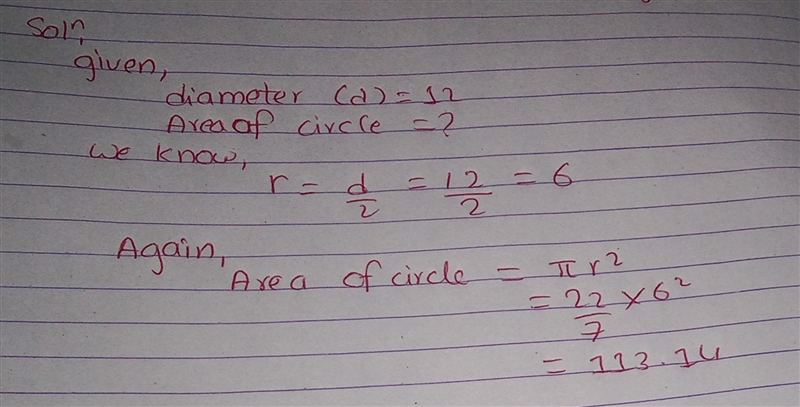 Soln,
given,
diameter (d) = 12
Area of circle = ?
We know,
r = d/2 = 12/2 = 6
Again,
Area of circle = πr²
= 22/7 × 6²
= 113.14